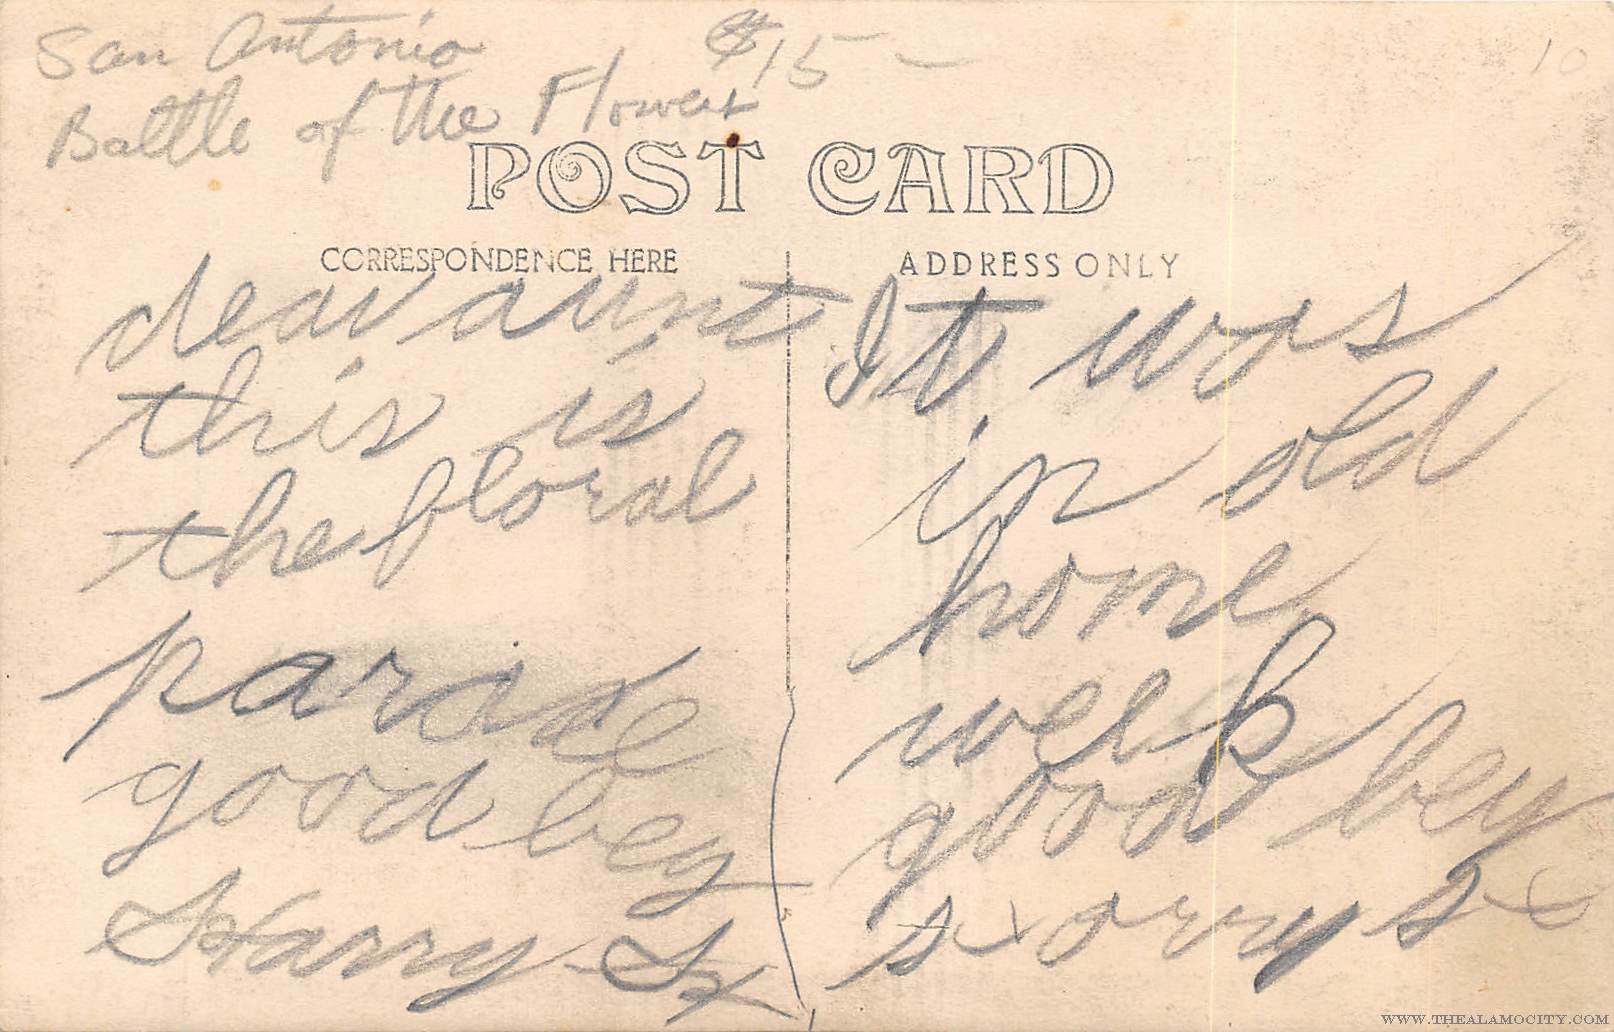 San Antonio $15-
Battle of the Flowers
10
POST CARD
CORRESPONDENCE HERE
dear aunt
this is
the floral
parade
good bey
Harry
ADDRESS ONLY
It was
in old
home
week
good bey
WWW.THEALAMOCITY.COM